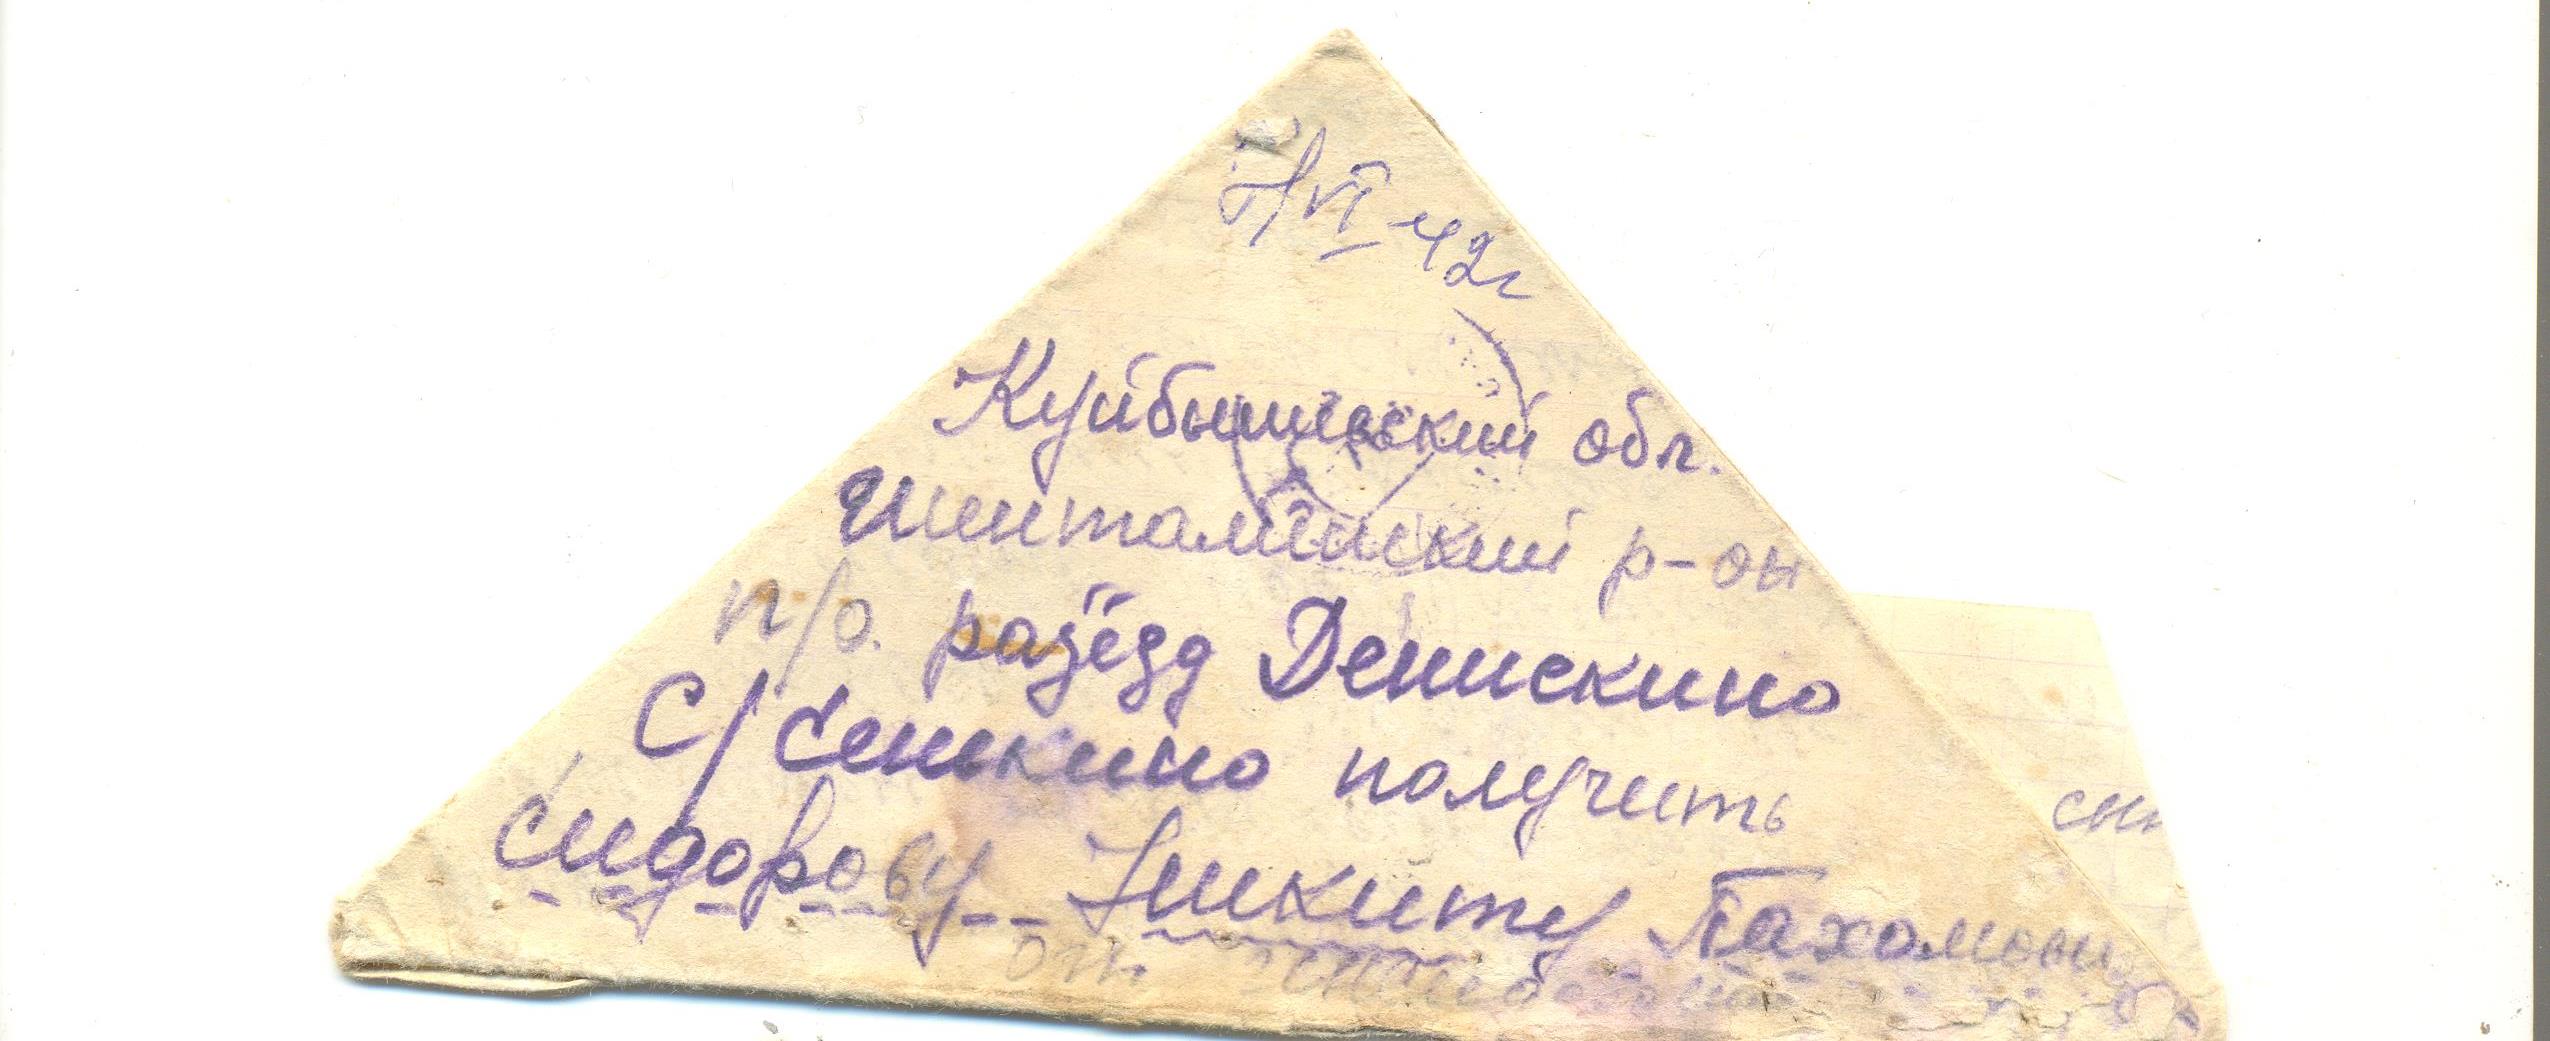 7/VI-42г
Куйбышевский обл.
Шенталинский р-он
п/о. разъезд Денискино
С/Сенькино получить
Сидорову Никиту Пахомови
от
сни